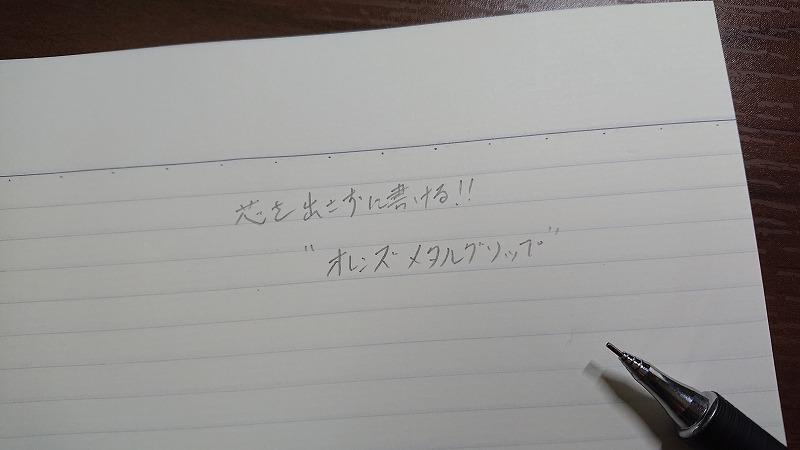 芯を出さずに書ける!!
"オレンズメタルグリップ"